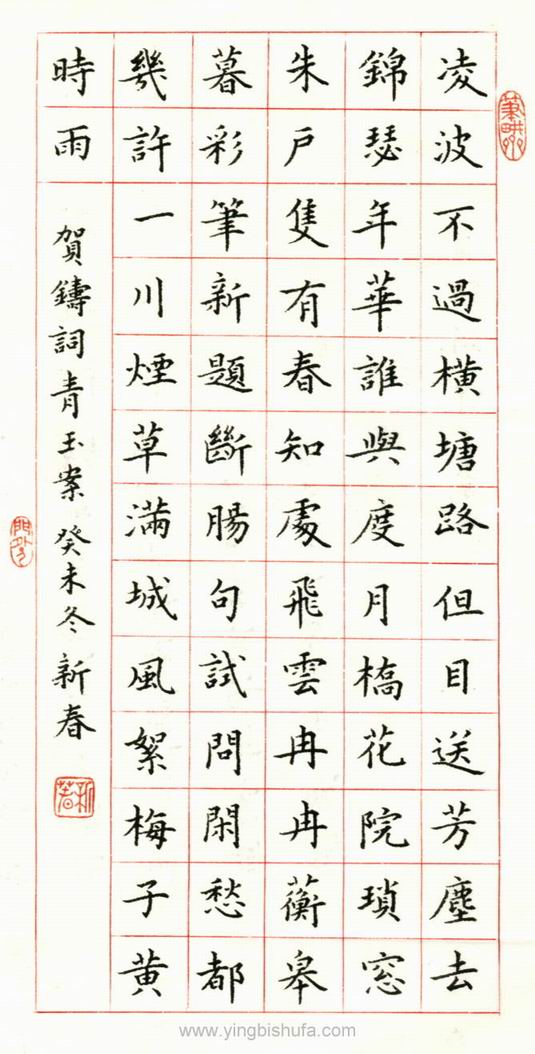 凌波不過橫塘路但目送芳塵去
錦瑟年華誰與度月橋花院瑣窓
朱戶隻有春知處飛雲冉冉蘅皋
暮彩筆新題斷腸句試問閑愁都
幾許一川煙草滿城風絮梅子黃
時雨
賀鑄詞青玉案 癸未冬 新春
www.yingbishufa.com